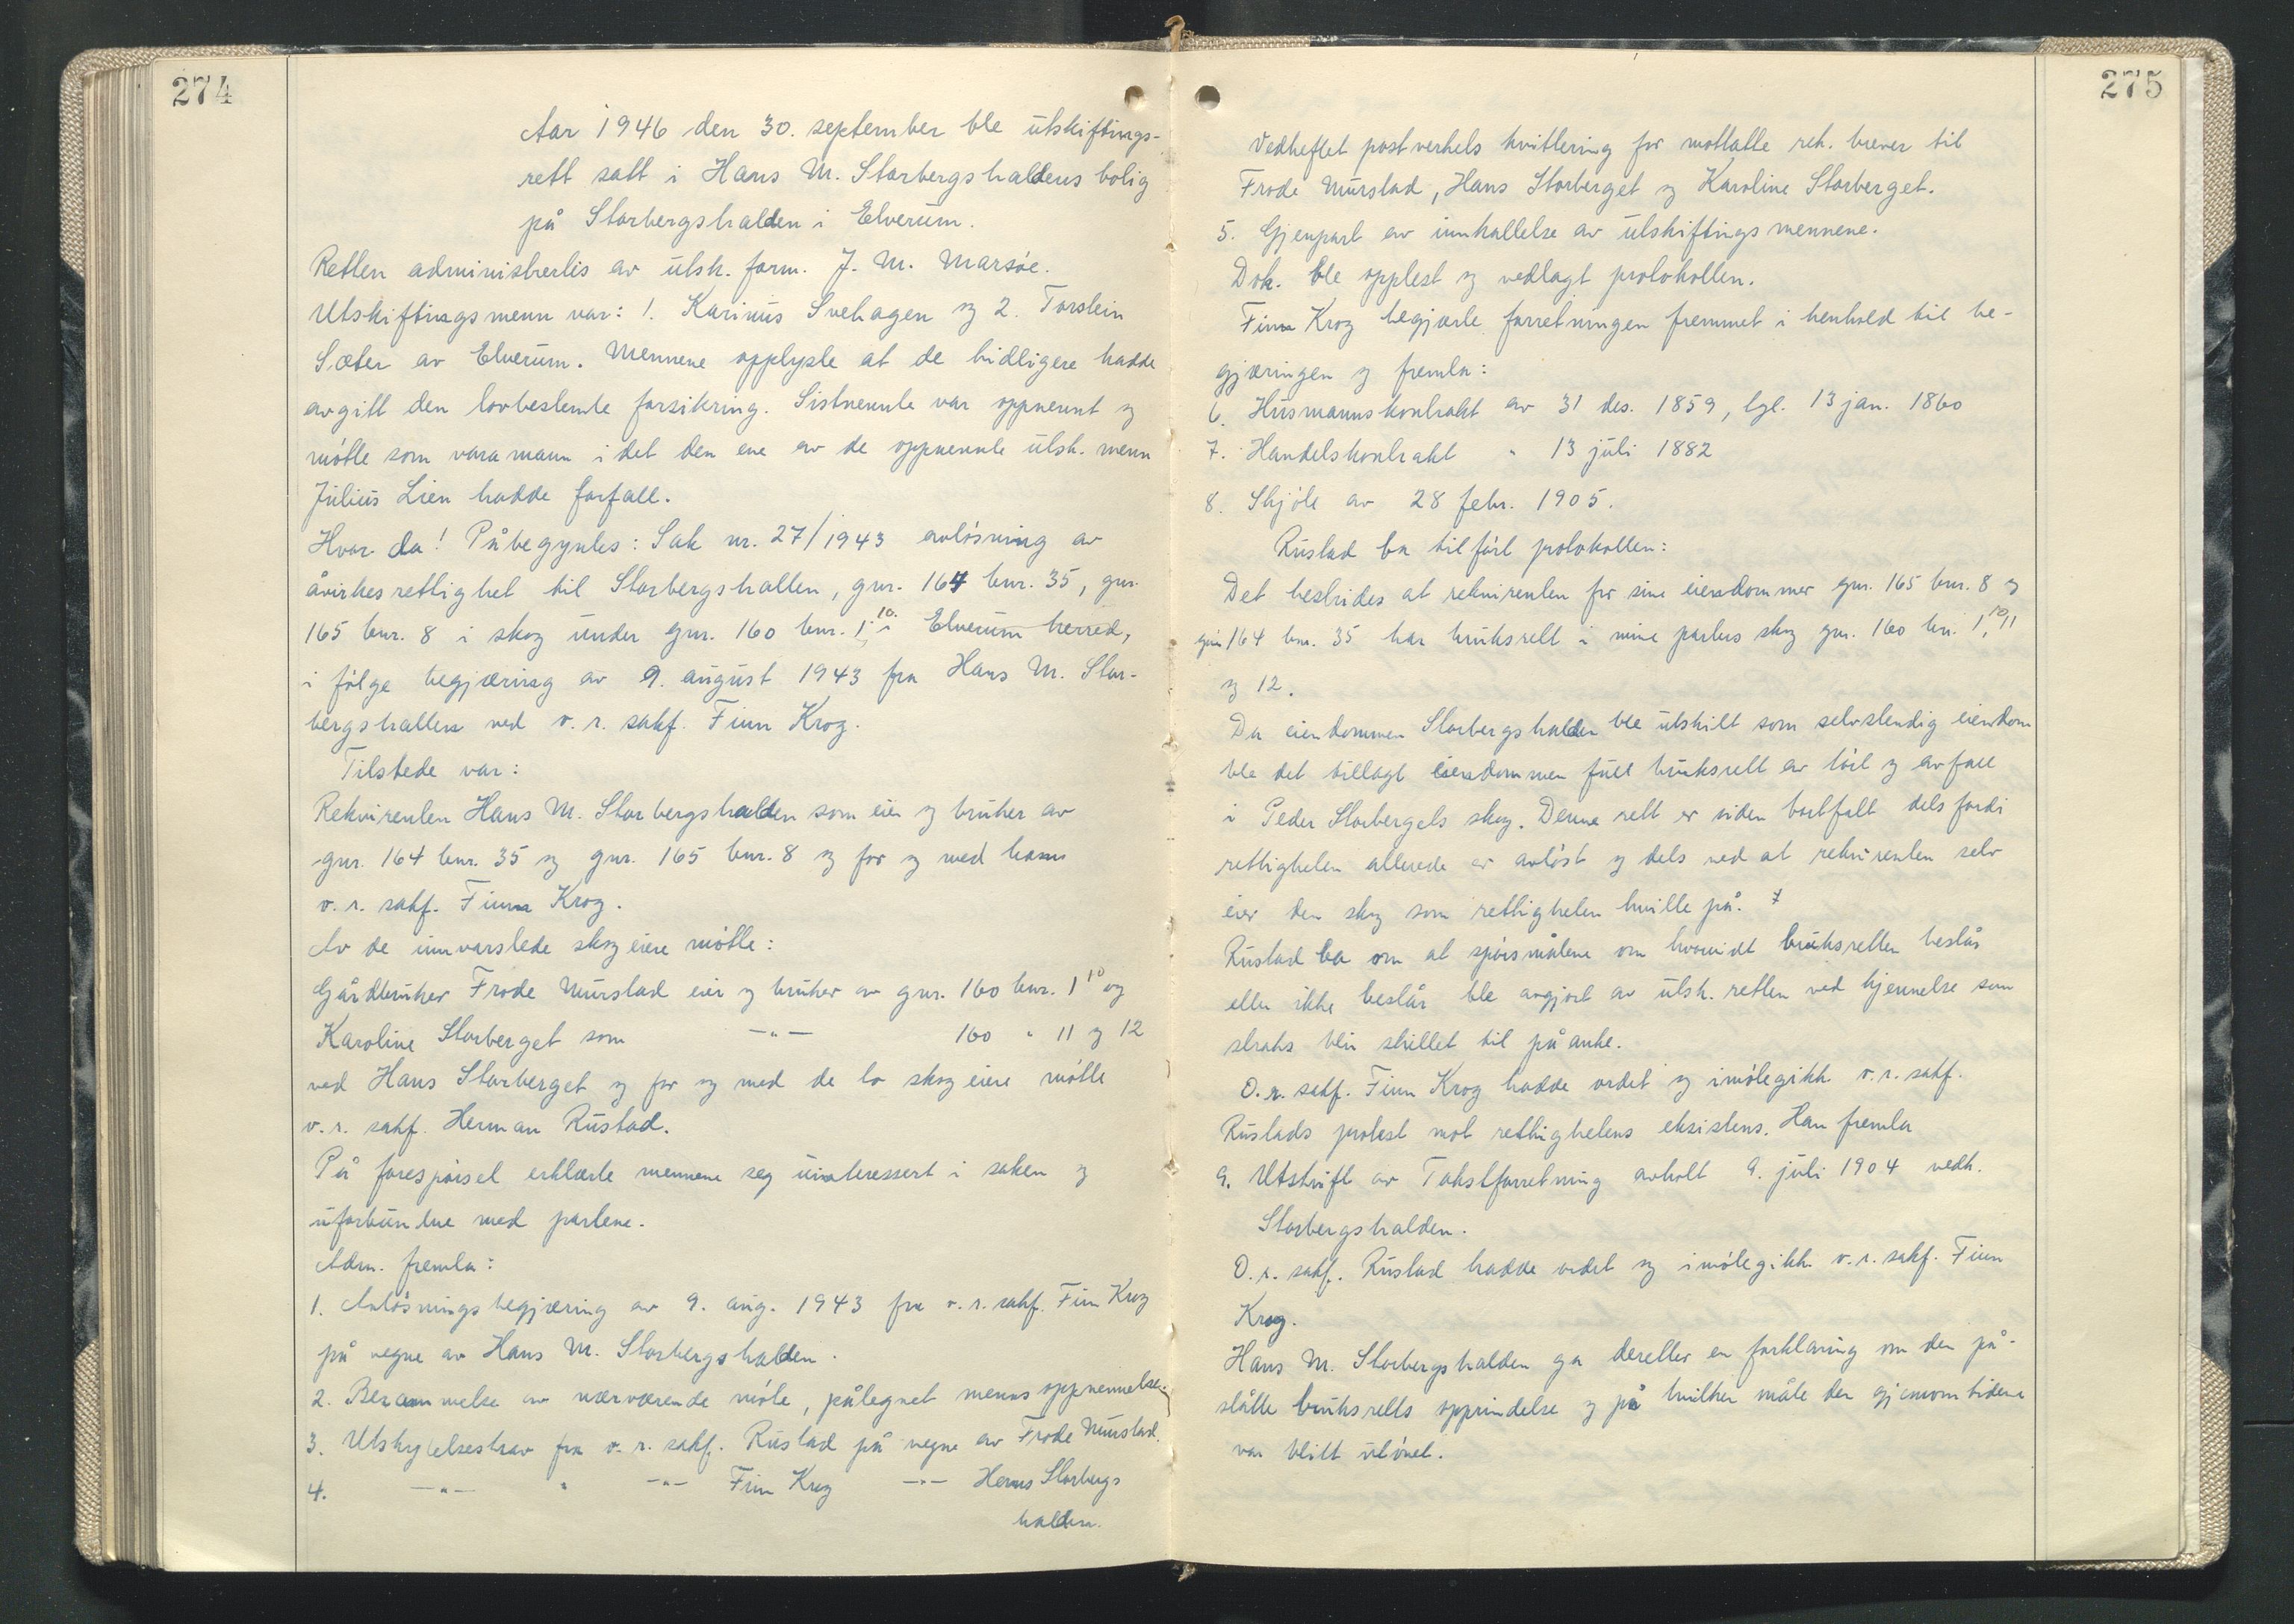 274
Aar 1946 den 30. september ble utskiftings-
rett satt i Hans M. Storbergshaldens bolig
på Storbergshalden i Elverum.
Retten administrertis av utsk. form. J. M. Marsøe.
Utskiftingsmenn var: 1. Karinus Svehagen og 2. Torstein
Sæter av Elverum. Mennene opplyste at de tidligere hadde
avgitt den lovbestemte forsikring. Sistnevnte var oppnevnt og
møtte som varamann i det den ene av de oppnevnte utsk. menn
Julius Lien hadde forfall.
Hvor da! Påbegyntes: Sak nr. 27/1943 avløsning av
åvirkesrettighet til Storbergshallen, gnr. 164 bnr. 35, gnr.
165 bnr. 8 i skog under gnr. 160 bnr. 1 10 i Elverum herred,
i følge begjæring av 9. august 1943 fra Hans M. Stor-
bergshallen ved o. r. sakf. Finn Krog.
Tilstede var:
Rekvirenten Hans M. Storbergshalden som eier og bruker av
gnr. 164 bnr. 35 og gnr. 165 bnr. 8 og for og med ham
o. r. sakf. Finn Krog.
Av de innvarslede skogeiere møtte:
Gårdbruker Frode Murstad eier og bruker av gnr. 160 bnr. 1 10 og
Karoline Storberget som —"— 160 " 11 og 12
ved Hans Storberget og for og med de to skogeiere møtte
o. r. sakf. Herman Rustad.
På forespørsel erklærte mennene seg uinteressert i saken og
uforbundne med partene.
Adm. fremla:
1. Avløsningsbegjæring av 9. aug. 1943 fra o. r. sakf. Finn Krog
på vegne av Hans M. Storbergshalden.
2. Berammelse av nærværende møte, påtegnet menns oppnevnelse.
3. Utskytelseskrav fra o. r. sakf. Rustad på vegne av Frode Murstad.
4. —"— " —"— Finn Krog —"— Hans Storbergs
halden.
275
Vedheftet postverkets kvittering for mottatte rek. brever til
Frode Murstad, Hans Storberget og Karoline Storberget.
5. Gjenpart av innkallelse av utskiftingsmennene.
Dok. ble opplest og vedlagt protokollen.
Finn Krog begjærte forretningen fremmet i henhold til be-
gjæringen og fremla:
6. Husmannskontrakt av 31 des. 1859, tgl. 13 jan. 1860
7. Handelskontrakt " 13 juli 1882
8. Skjøte av 28 febr. 1905.
Rustad ba tilført protokollen:
Det bestrides at rekvirenten for sine eiendommer gnr. 165 bnr. 8 og
gnr 164 bnr. 35 har bruksrett i mine parters skog gnr. 160 bnr. 1, 10, 11
og 12.
Da eiendommen Storbergshalden ble utskilt som selvstendig eiendom
ble det tillagt eiendommen full bruksrett av tøil og avfall
i Peder Storbergets skog. Denne rett er siden bortfalt dels fordi
rettigheten allerede er avløst og dels ved at rekvirenten selv
eier den skog som rettigheten hvilte på. 7
Rustad ba om at spørsmålene om hvorvidt bruksretten består
eller ikke består ble avgjort av utsk. retten ved kjennelse som
straks blir skillet til påanke.
O. r. sakf. Finn Krog hadde ordet og imøtegikk o. r. sakf.
Rustads protest mot rettighetens eksistens. Han fremla
9. Utskrift av Takstforretning avholt 9. juli 1904 vedk.
Storbergshalden.
O. r. sakf. Rustad hadde ordet og imøtegikk o. r. sakf. Finn
Krog.
Hans M. Storbergshalden ga deretter en forklaring om den på-
ståtte bruksretts opprindelse og på hvilken måte den gjennom tidene
var blitt utøvet.